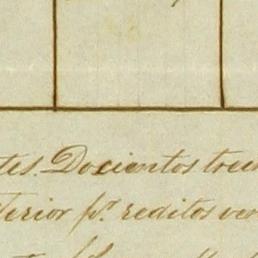 tes. Docientos trein
terior pr. reditos ven